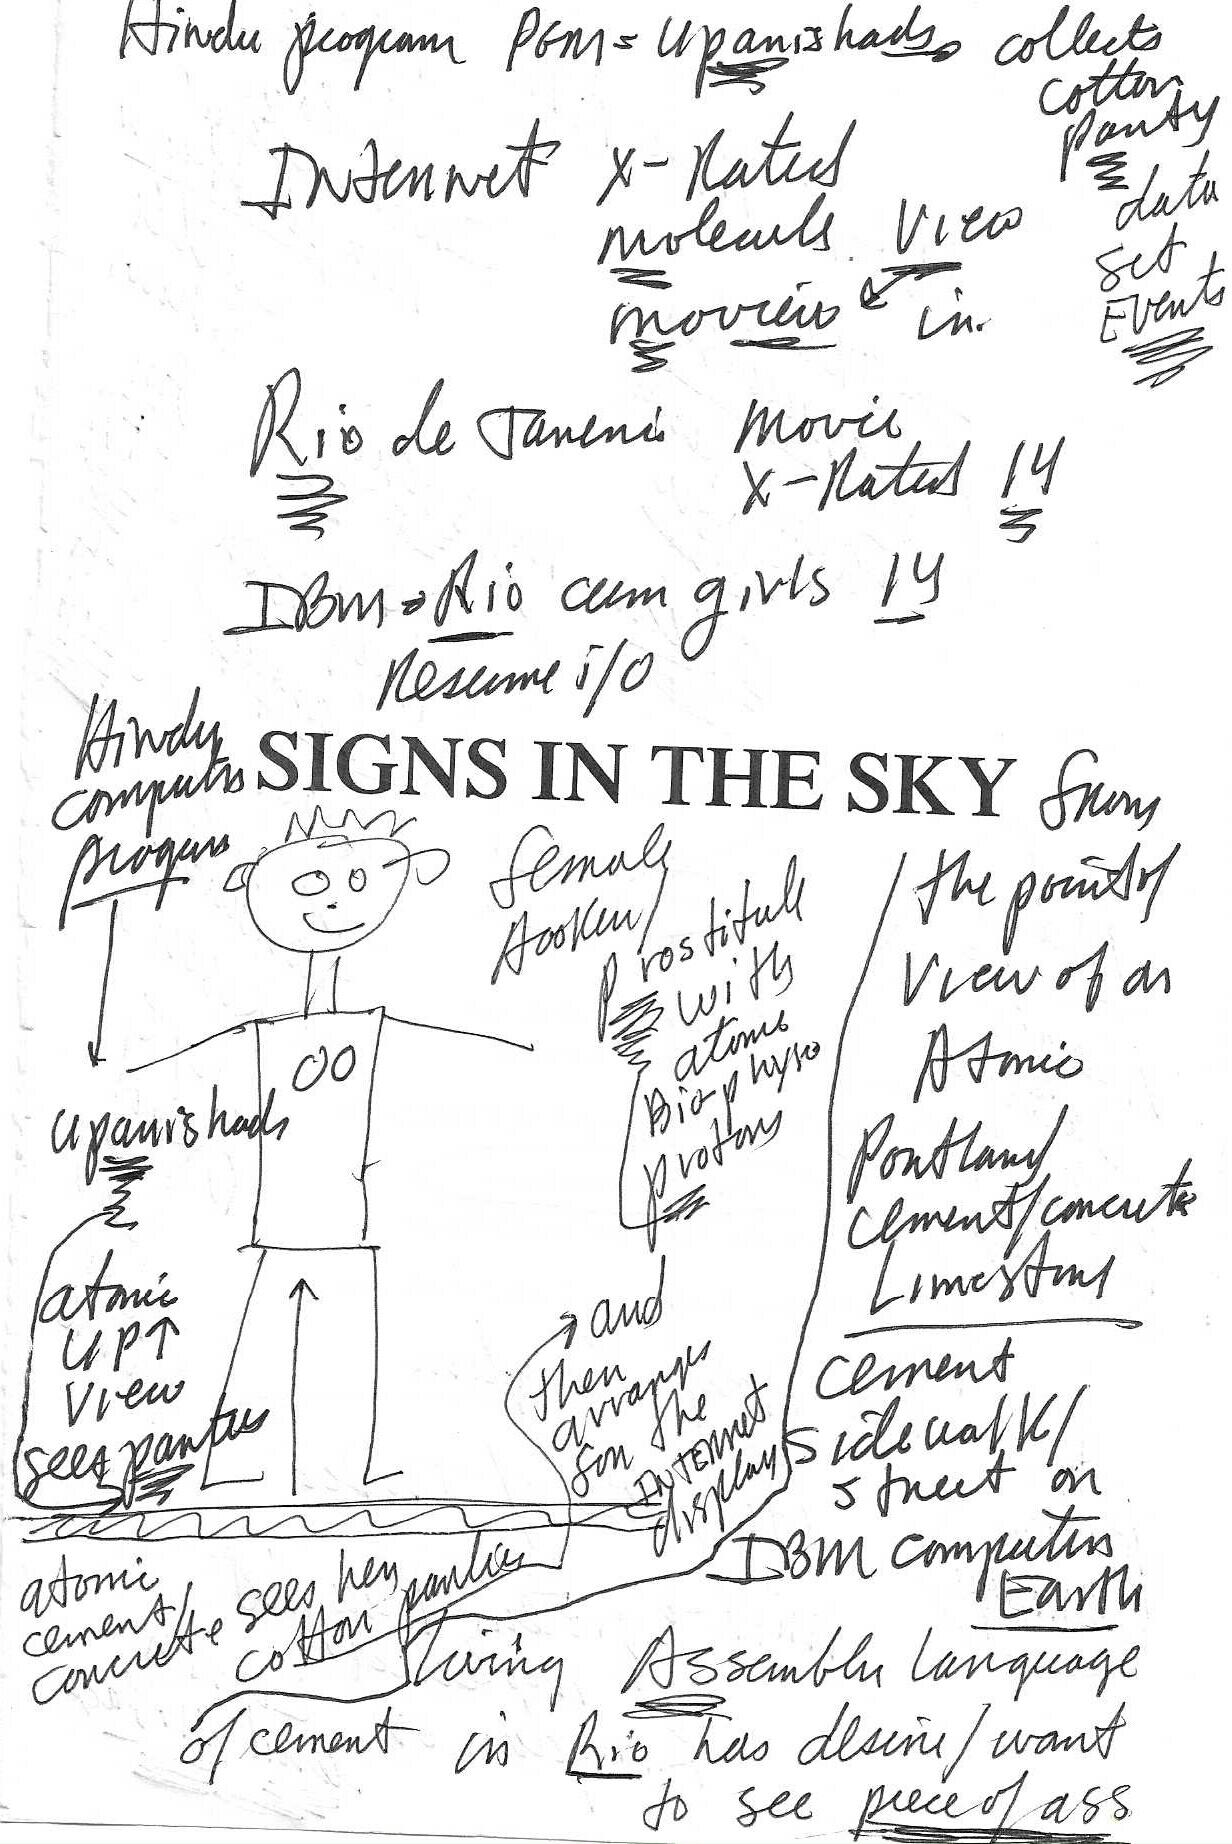 Hindu program PGM = Upanishads collects
cotton
panty
data
set
Events
Internet X-Rated
molecule view
movies in
Rio de Janeiro movie
X-Rated
IBM = Rio girls
Resume i/o
Hindu
computer
program
SIGNS IN THE SKY from
the point of
view of an
Atomic
Portland
cement/concrete
Limestone
cement
sidewalk/
street on
IBM computers
Earth
female
hooker/
Prostitute
with
atomic
Bio-physo
protons
Upanishads
atomic
UP↑
view
sees panties
and
then
arranges
for the
INTERNET
display
atomic
cement/
concrete sees her
cotton panties
living Assembler language
of cement in Rio has desire/want
to see piece of ass